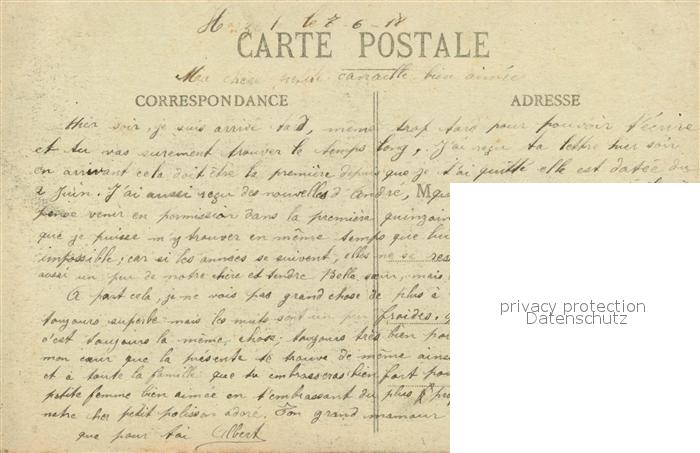 le 7-6-18
CARTE POSTALE
Ma chère petite canaille bien aimée
CORRESPONDANCE
ADRESSE
Hier soir, je suis arrivé tard, même trop tard pour pouvoir t'écrire
et tu vas surement trouver le temps long, J'ai reçu ta lettre hier soir
en arrivant cela doit être la première depuis que je t'ai quitté elle est datée du
2 Juin. J'ai aussi reçu des nouvelles d'André, M
pense venir en permission dans la première quinzain
que je puisse m'y trouver en même temps que lui
impossible; car si les années se suivent, elles ne se res
aussi un peu de notre chère et tendre Belle sœur, mais
A part cela, je ne vois pas grand chose de plus à
toujours superbe mais les nuits sont un peu froides.
c'est toujours la même chose, toujours très bien por
mon cœur que la présente te trouve de même ains
et à toute la famille que tu embrasseras bien fort pou
petite femme bien aimée en t'embrassant du plus
notre cher petit polisson adoré. Ton grand mamour
que pour toi Albert
privacy protection
Datenschutz